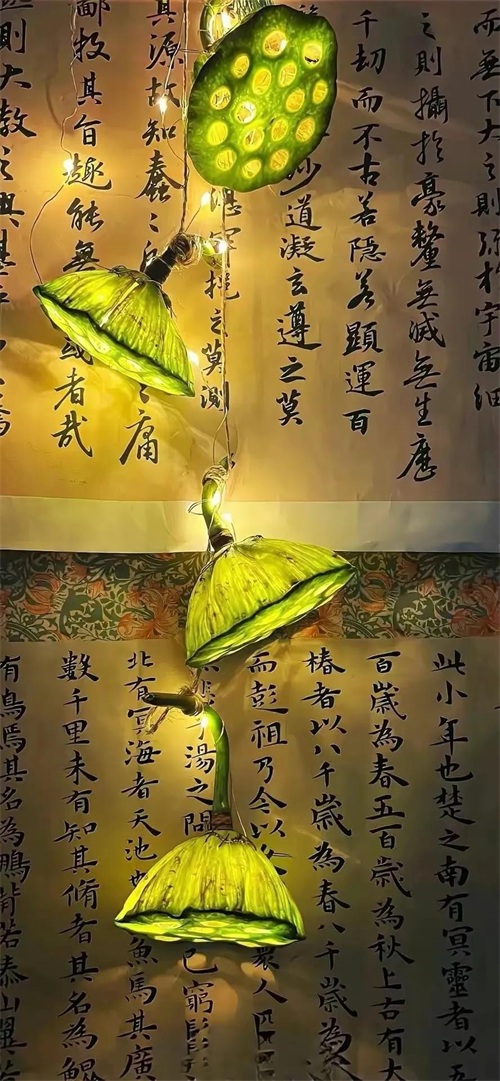 而無下大之則弥於宇宙細
之則攝於豪釐無滅無生歷
千劫而不古若隱若顯運百
妙道凝玄遵之莫
湛寂挹莫測
其源故知蠢〻庸
鄙投其旨趣能無或者哉
則大教之興基乎
此小年也楚之南有冥靈者以五
百歲為春五百歲為秋上古有大
椿者以八千歲為春八千歲為
而彭祖乃今以衆人匹
湯之問已窮髮
北有冥海者天池也魚焉其廣
數千里未有知其脩者其名為鯤
有鳥焉其名為鵬背若泰山翼若